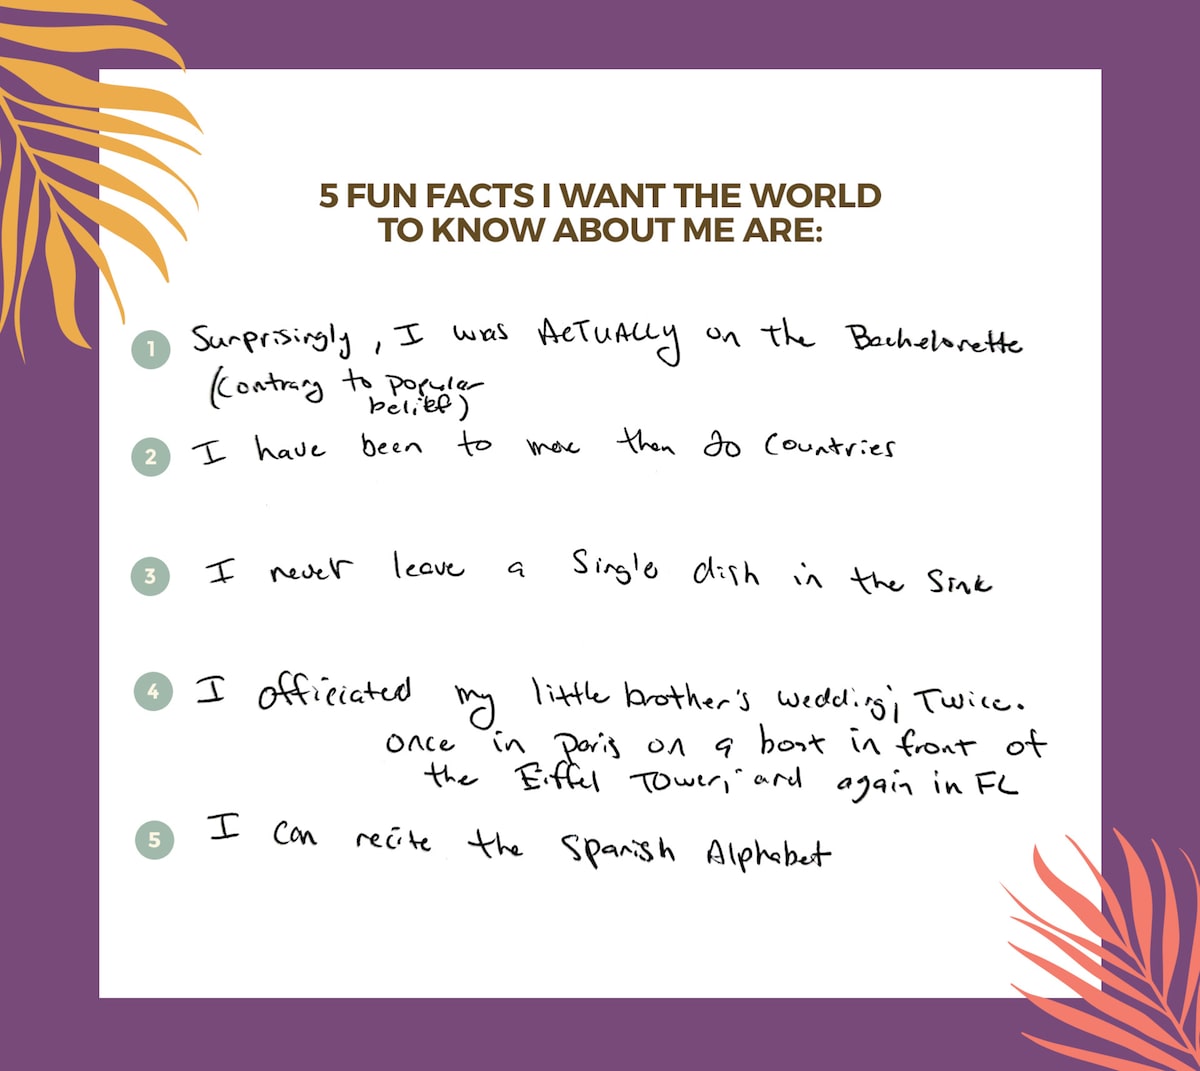 5 FUN FACTS I WANT THE WORLD
TO KNOW ABOUT ME ARE:
1 Surprisingly, I was ACTUALLY on the Bachelorette
(Contrary to popular
belief)
2 I have been to more than 20 Countries
3 I never leave a Single dish in the Sink
4 I officiated my little brother's wedding; Twice.
once in Paris on a boat in front of
the Eiffel Tower, and again in FL
5 I can recite the Spanish Alphabet